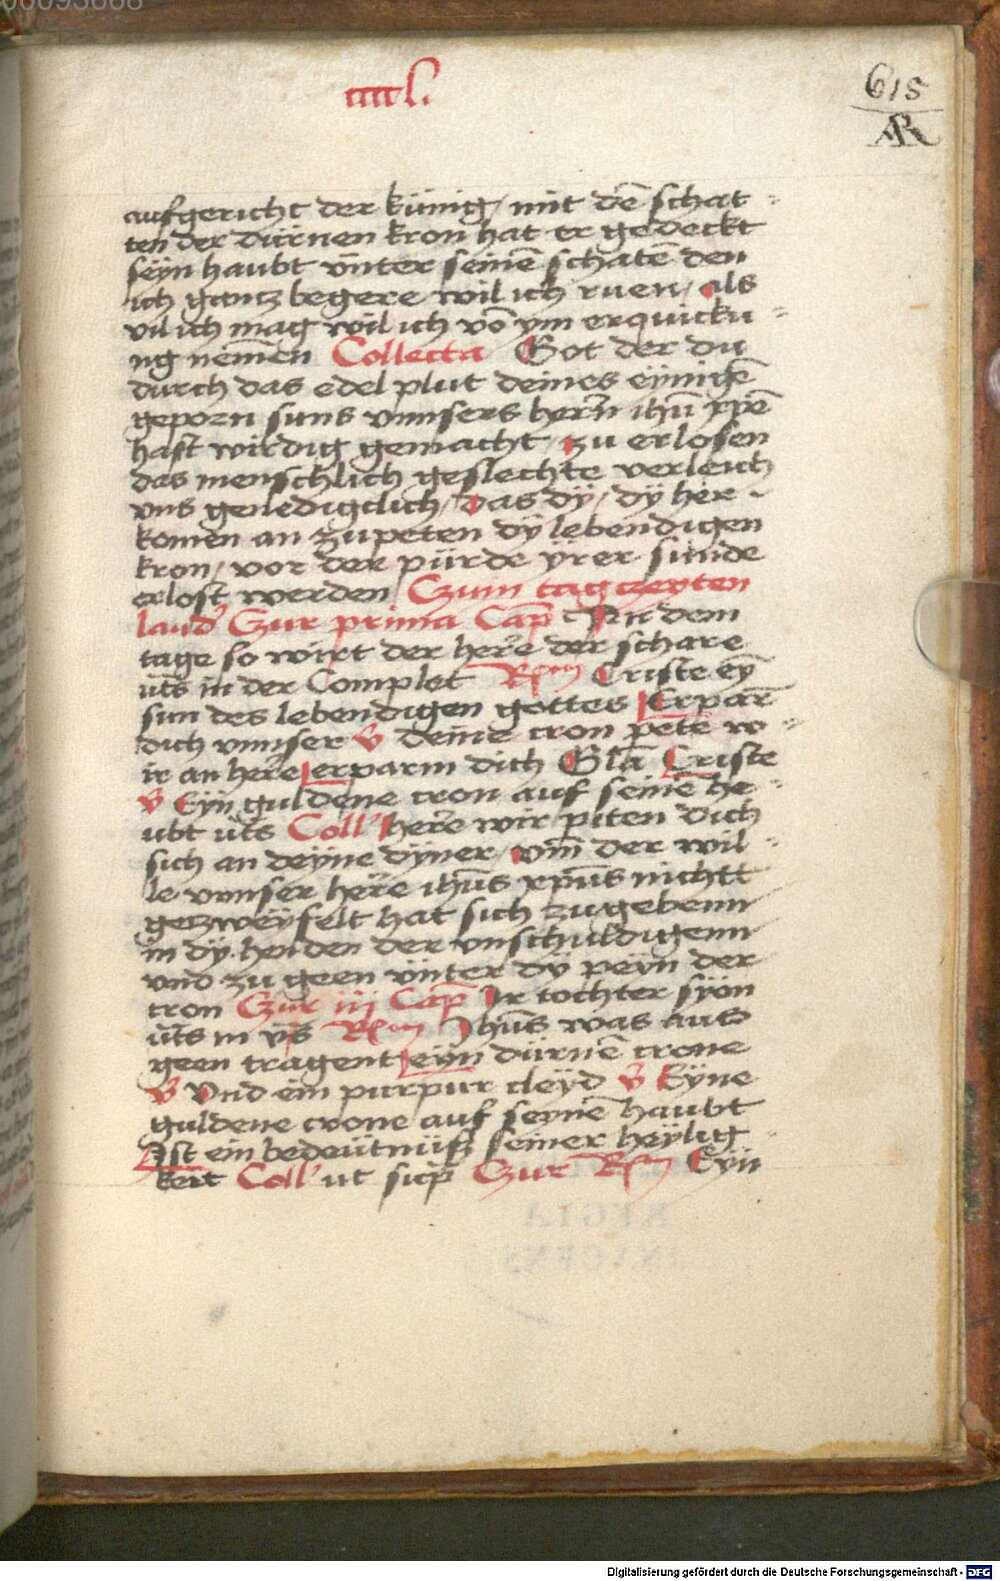 00093668
ccccl.
615
AR
aufgericht der künig, mit dē schat-
ten der dürnen kron hat er gedeckt
seyn haubt vnter seinē schatē den
ich gantz begere wil ich ruen, als
vil ich mag wil ich vō ym erquicku-
ng nemen Collecta Got der du
durch das edel plut deines eynigē
geporn suns vnnsers herrn ihū xpē
hast wirdig gemacht, zu erlosen
das menschlich geslechte verleich
vns genedigclich, das dÿ, dÿ her-
komen an zupeten dÿ lebendigen
kron, vor der pürde yrer sünde
erlost werden Czum tagczeyten
laud' Czur prima Cap̄ An dem
tage so wirt der herre der schare
vts in der Complet Rsm Criste eȳ
sun des lebendigen gottes Erparm̄
dich vnnser V deine cron petē w-
ir an here, erparm dich Glā Criste
V Eyn guldene cron auf seinē he-
ubt vts Coll' here wir piten dich
sich an deyne dyner, vm̄ der wil-
le vnnser herre ihūs xpūs nichtt
gezweyfelt hat sich zugebenn
in dÿ henden der vnschuldigenn
vnd zu geen vnter dÿ peyn der
cron Czur iij Cap̄ Ir tochter sÿon
vts in vs Rsm Jhūs was aus
geen tragent eyn dürnē crone
V Vnd ein purpur cleyd V Eyne
guldene crone auf seynē haubt
Ist ein bedeütnüß seiner heylig
keit Coll' ut sup̄ Czur Rsm Eyn
REGIA
MONACENSIS
Digitalisierung gefördert durch die Deutsche Forschungsgemeinschaft - DFG